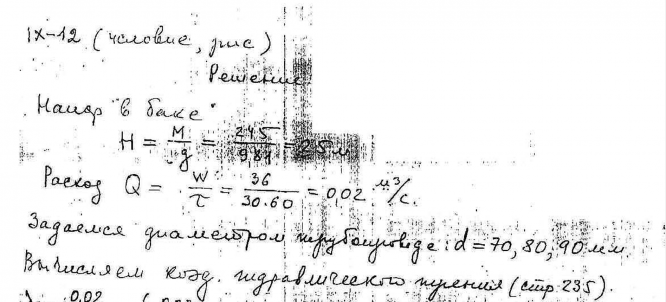 IX-12 (условие, рис)
Решение.
Напор "в баке"
H = M/g = 245/9,81 = 25 м
Расход Q = W/τ = 36/30·60 = 0,02 м³/с.
Задаемся диаметром трубопровода: d = 70, 80, 90 мм.
Вычисляем коэф. гидравлического трения (стр. 235).
0,02